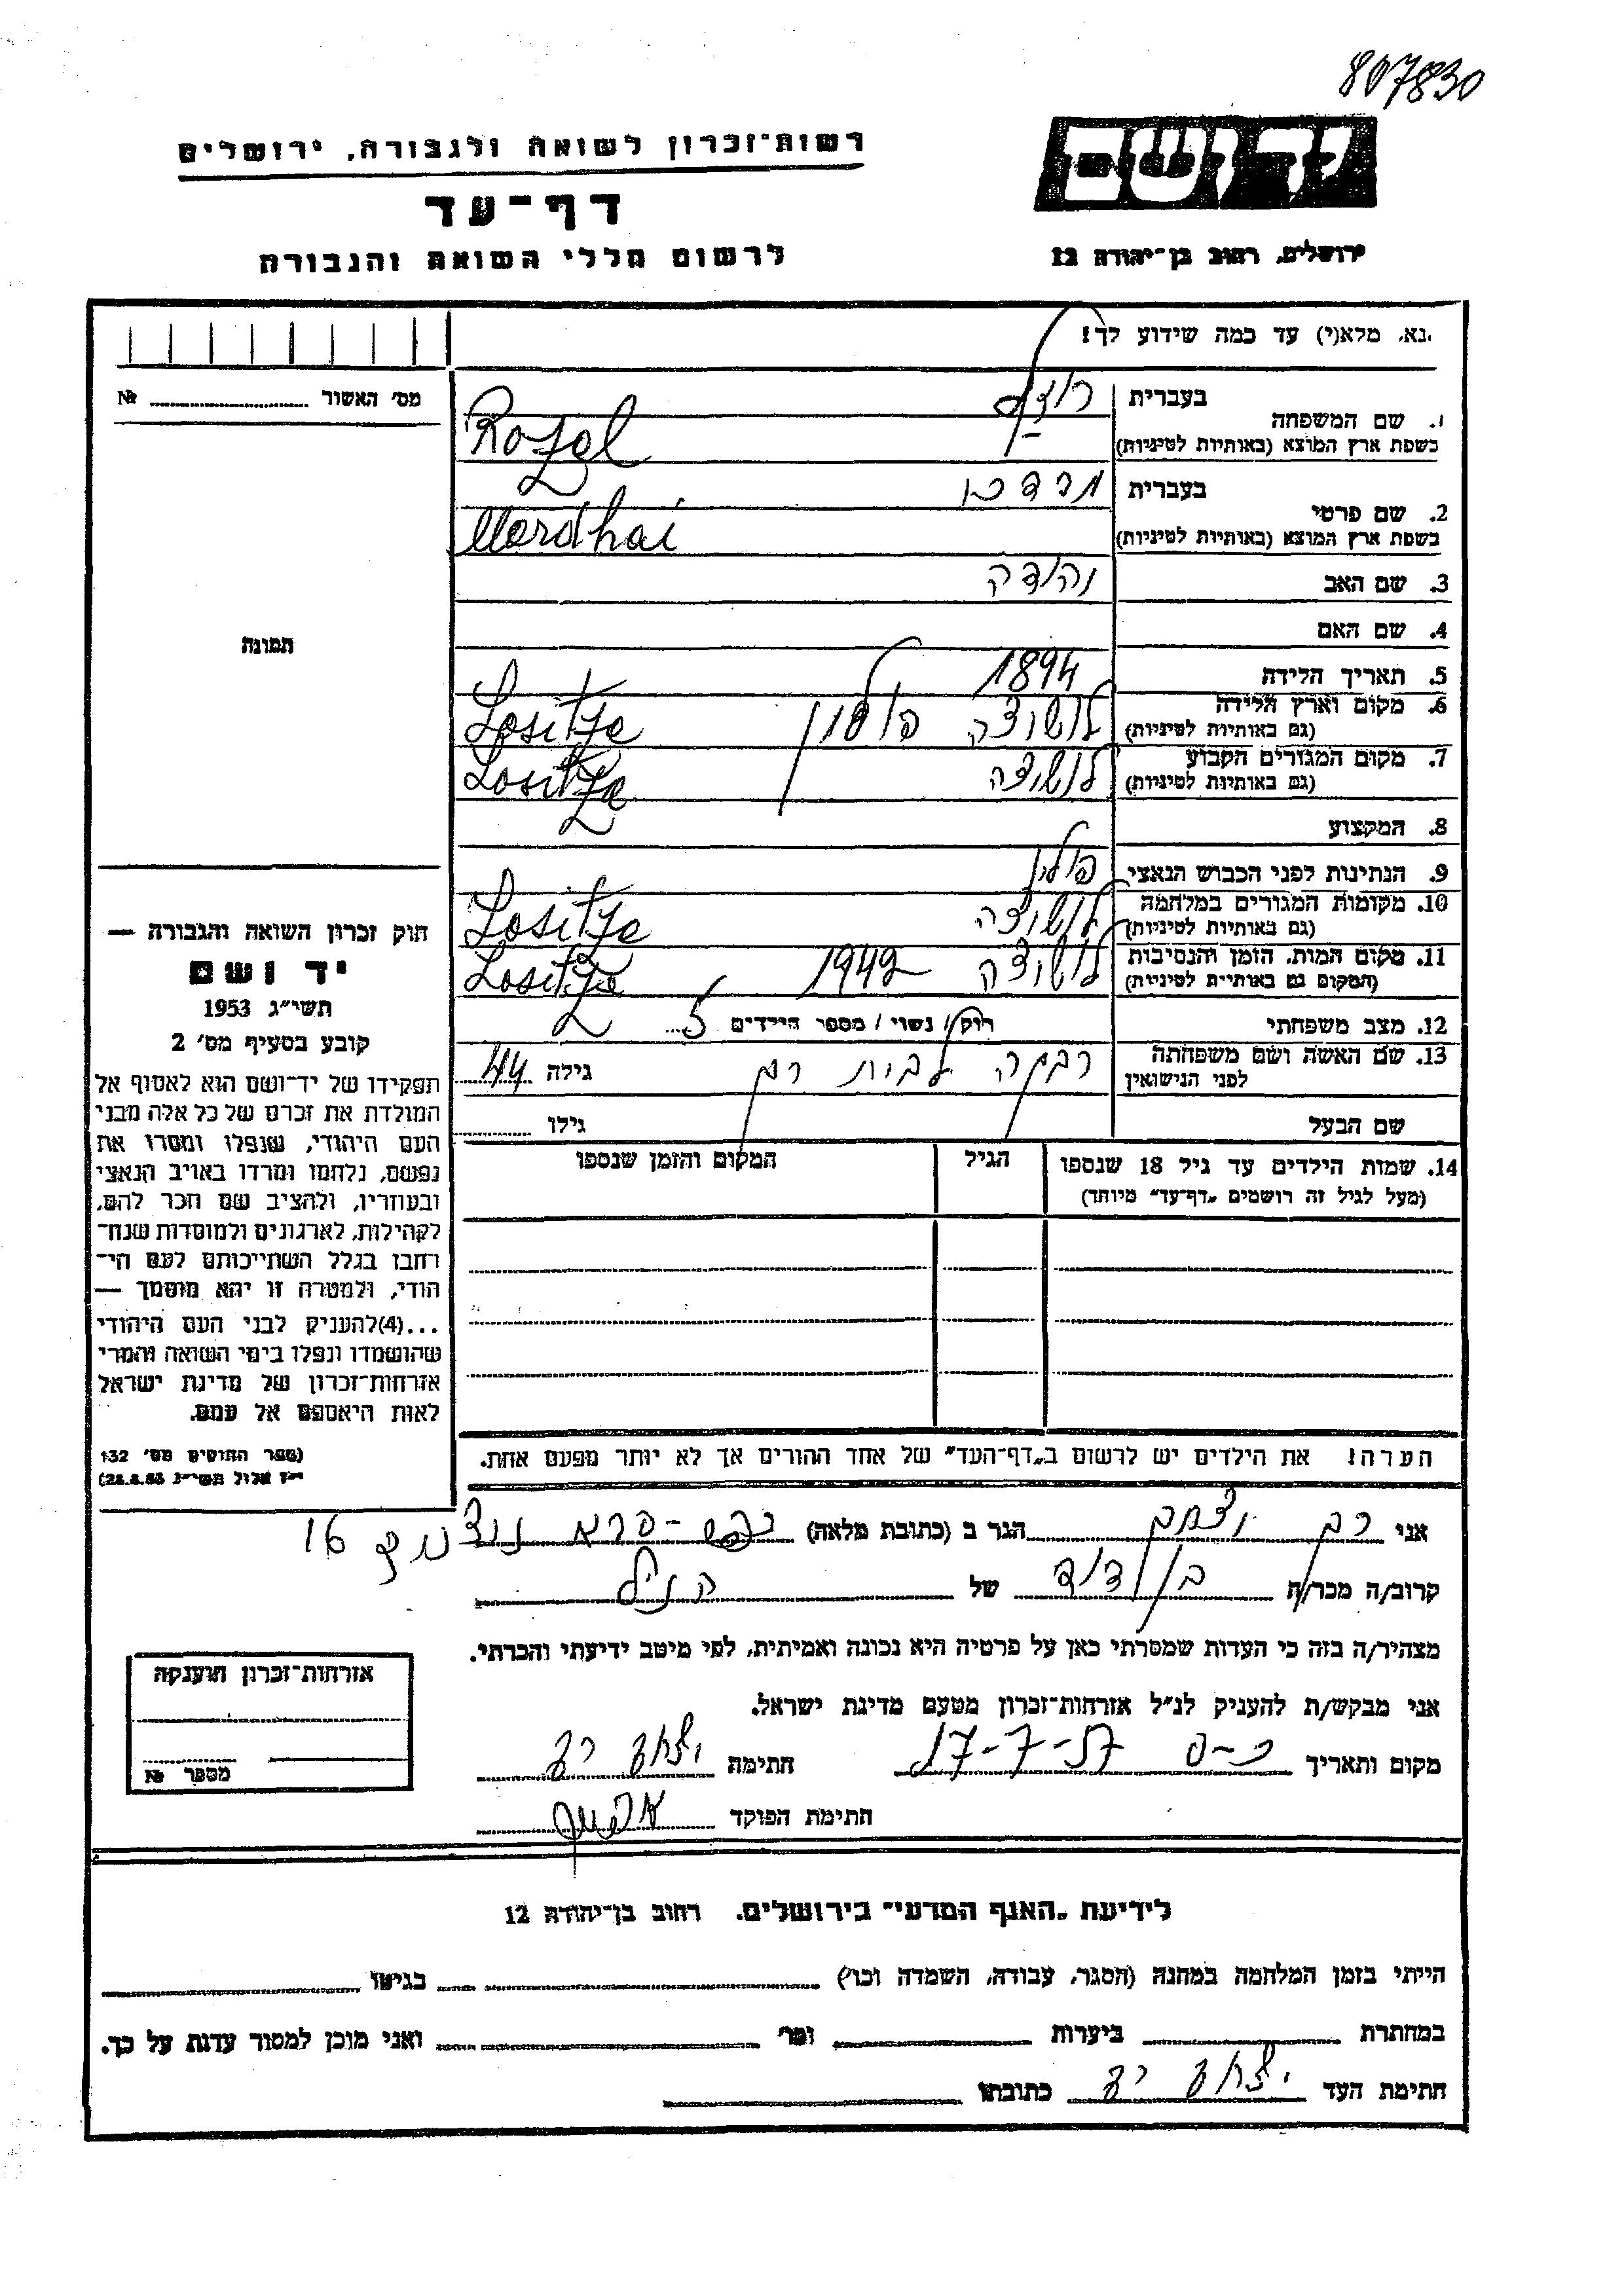 807830
יד ושם
רשות־זכרון לשואה ולגבורה, ירושלים
דף־עד
לרשום חללי השואה והגבורה
ירושלים, רחוב בן־יהודה 12
נא, מלא(י) עד כמה שידוע לך!
מס' האשור №
1. שם המשפחה
בעברית
בשפת ארץ המוצא (באותיות לטיניות) Rozel
2. שם פרטי
בעברית מרדכי
בשפת ארץ המוצא (באותיות לטיניות) Mordhai
3. שם האב יהודה
4. שם האם
תמונה
5. תאריך הלידה 1894
6. מקום וארץ הלידה
(גם באותיות לטיניות) לושיצה פולין Lositze
7. מקום המגורים הקבוע
(גם באותיות לטיניות) לושיצה Lositze
8. המקצוע
9. הנתינות לפני הכבוש הנאצי פולין
10. מקומות המגורים במלחמה
(גם באותיות לטיניות) לושיצה Lositze
11. מקום המות, הזמן והנסיבות
(המקום גם באותיות לטיניות) לושיצה 1942 Lositze
12. מצב משפחתי רווק / נשוי / מספר הילדים 5
13. שם האשה ושם משפחתה
לפני הנישואין רבקה לבית רם גילה 44
שם הבעל גילו
14. שמות הילדים עד גיל 18 שנספו הגיל המקום והזמן שנספו
(מעל לגיל זה רושמים "דף־עד" מיוחד)
הערה! את הילדים יש לרשום ב"דף־העד" של אחד ההורים אך לא יותר מפעם אחת.
חוק זכרון השואה והגבורה —
יד ושם
תשי"ג 1953
קובע בסעיף מס' 2
תפקידו של יד־ושם הוא לאסוף אל
המולדת את זכרם של כל אלה מבני
העם היהודי, שנפלו ומסרו את
נפשם, נלחמו ומרדו באויב הנאצי
ובעוזריו, ולהציב שם וזכר להם,
לקהילות, לארגונים ולמוסדות שנח־
רחבו בגלל השתייכותם לעם הי־
הודי, ולמטרה זו יהא מוסמך —
...(4)להעניק לבני העם היהודי
שהושמדו ונפלו בימי השואה והמרי
אזרחות־זכרון של מדינת ישראל
לאות היאספם אל עמם.
(ספר החוקים מס' 132
י"ז אלול תשי"ג 28.8.53)
אני רם יצחק הגר ב (כתובת מלאה) כפר-סבא 16
קרוב/ה מכר/ה בן דוד של הנ"ל
מצהיר/ה בזה כי העדות שמסרתי כאן על פרטיה היא נכונה ואמיתית, לפי מיטב ידיעתי והכרתי.
אני מבקש/ת להעניק לנ"ל אזרחות־זכרון מטעם מדינת ישראל.
מקום ותאריך כ-ס 17-7-57 חתימה יצחק רם
חתימת הפוקד
אזרחות־זכרון הוענקה
מספר №
לידיעת "האגף המדעי" בירושלים. רחוב בן־יהודה 12
הייתי בזמן המלחמה במחנה (הסגר, עבודה, השמדה וכו') בגיטו
במחתרת ביערות וכו' ואני מוכן למסור עדות על כך.
חתימת העד יצחק רם כתובתו